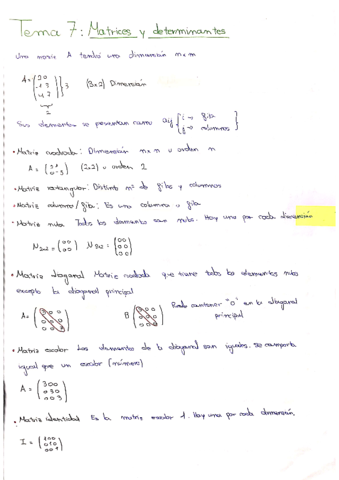 Tema 7: Matrices y determinantes
Una matriz A tendrá una dimensión n x m
(3x2) Dimensión
Sus elementos se presentan como aij { i → fila
j → columna }
• Matriz cuadrada: Dimensión n x n u orden n
A = (2x2) u orden 2
• Matriz rectangular: Distinto nº de filas y columnas
• Matriz columna/fila: Es una columna o fila
• Matriz nula Todos los elementos son nulos. Hay una por cada dimensión
0 0 0 0
0 0 0 0
0 0
• Matriz diagonal Matriz cuadrada que tiene todos los elementos nulos
excepto la diagonal principal
A = B Puede contener "0" en la diagonal
principal
• Matriz escalar Los elementos de la diagonal son iguales. Se comporta
igual que un escalar (número)
A = 3 0 0
0 3 0
0 0 3
• Matriz identidad Es la matriz escalar 1. Hay una por cada dimensión.
I = 1 0 0
0 1 0
0 0 1